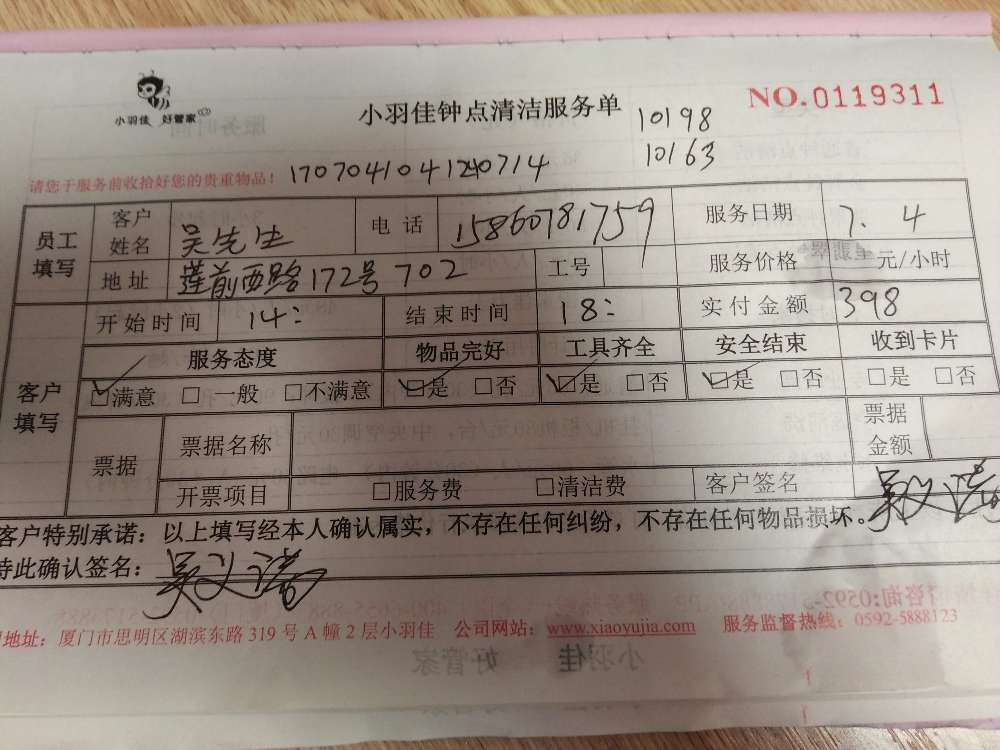 小羽佳 好管家
小羽佳钟点清洁服务单
NO.0119311
10198
10163
请您于服务前收拾好您的贵重物品!
员工填写 客户姓名 吴先生 电话 15860781759 服务日期 7.4
地址 莲前西路172号702 工号 服务价格 元/小时
客户填写 开始时间 14: 结束时间 18: 实付金额 398
服务态度 物品完好 工具齐全 安全结束 收到卡片
☑满意 □一般 □不满意 ☑是 □否 ☑是 □否 ☑是 □否 □是 □否
票据 票据名称 票据金额
开票项目 □服务费 □清洁费 客户签名
客户特别承诺:以上填写经本人确认属实,不存在任何纠纷,不存在任何物品损坏。
特此确认签名:
地址:厦门市思明区湖滨东路319号A幢2层小羽佳 公司网站:www.xiaoyujia.com 服务监督热线:0592-5888123